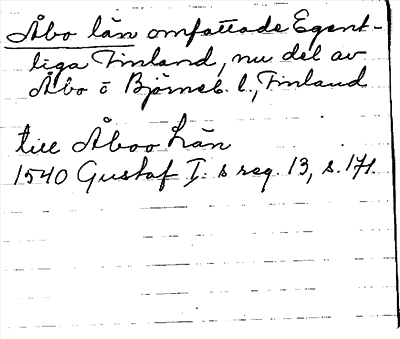 Åbo län omfattade Egent-
liga Finland, nu del av
Åbo o Björneb. l., Finland
till Åboo Län
1540 Gustaf I:s reg. 13, s. 171.